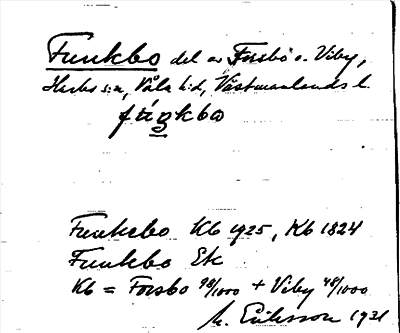 Funkbo del av Forsbo o. Viby,
Harbo s:n, Våla h:d, Västmanlands l.
fúŋkbω
Funkebo Kb 1925, Kb 1824
Funkbo Ek
Kb = Forsbo 98/1000 + Viby 48/1000
M. Eriksson 1931